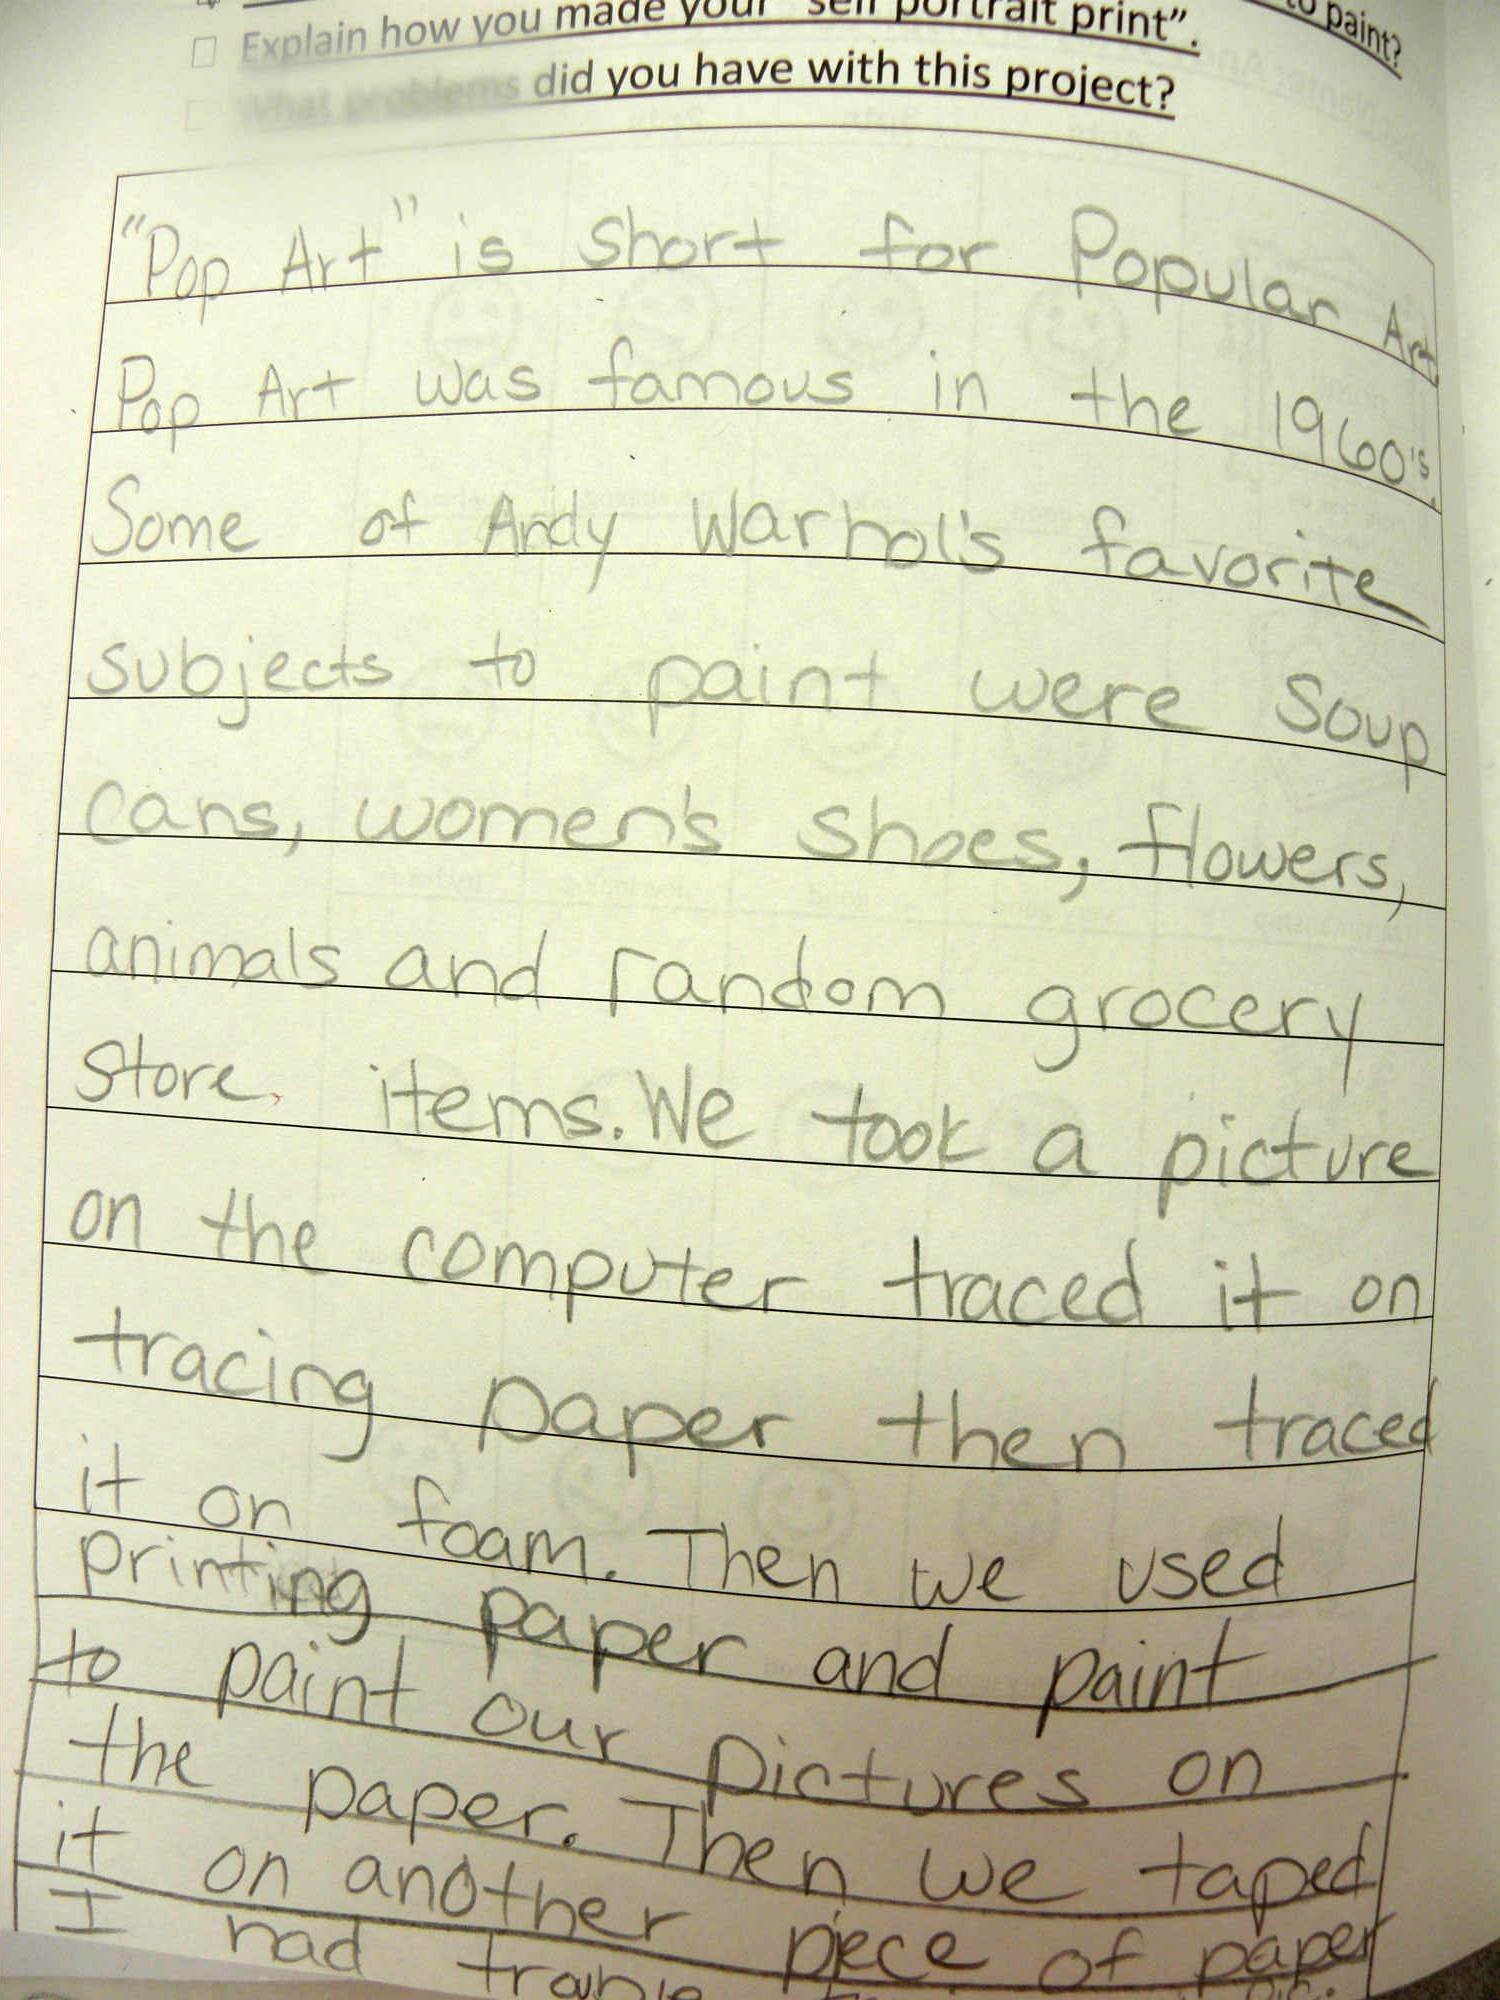 to paint?
Explain how you made your "self portrait print".
What problems did you have with this project?
"Pop Art" is short for Popular Art
Pop Art was famous in the 1960's.
Some of Andy Warhol's favorite
subjects to paint were Soup
cans, women's shoes, flowers,
animals and random grocery
store items. We took a picture
on the computer traced it on
tracing paper then traced
it on foam. Then we used
printing paper and paint
to paint our pictures on
the paper. Then we taped
it on another piece of paper
I had